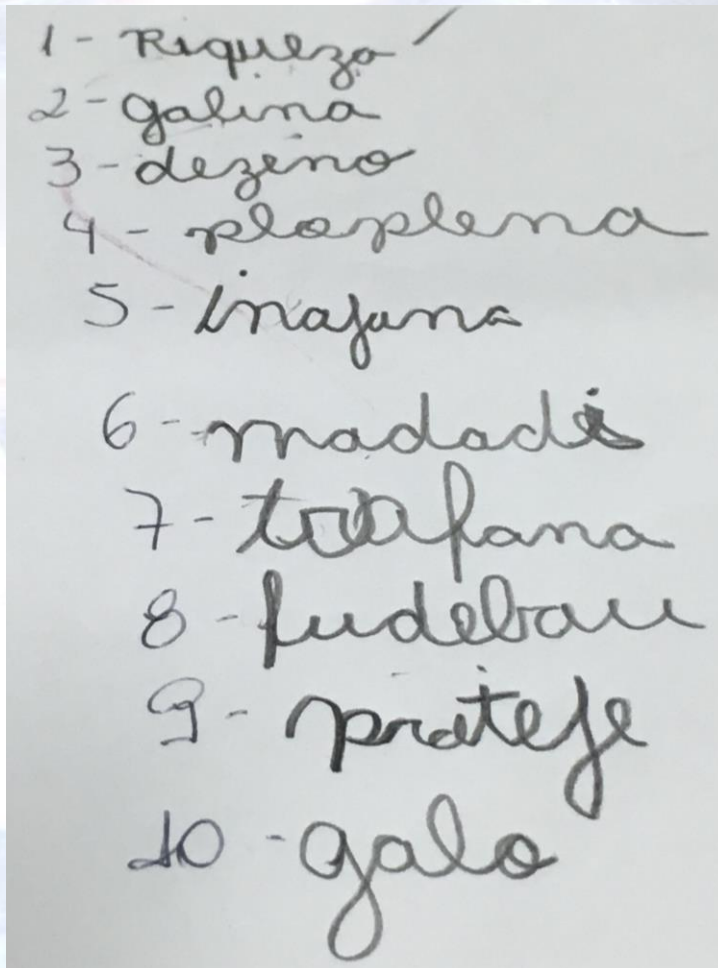 1 - Riqueza
2 - galina
3 - dezeno
4 - ploplena
5 - inajana
6 - madadi
7 - trafana
8 - fudebau
9 - prateje
10 - galo